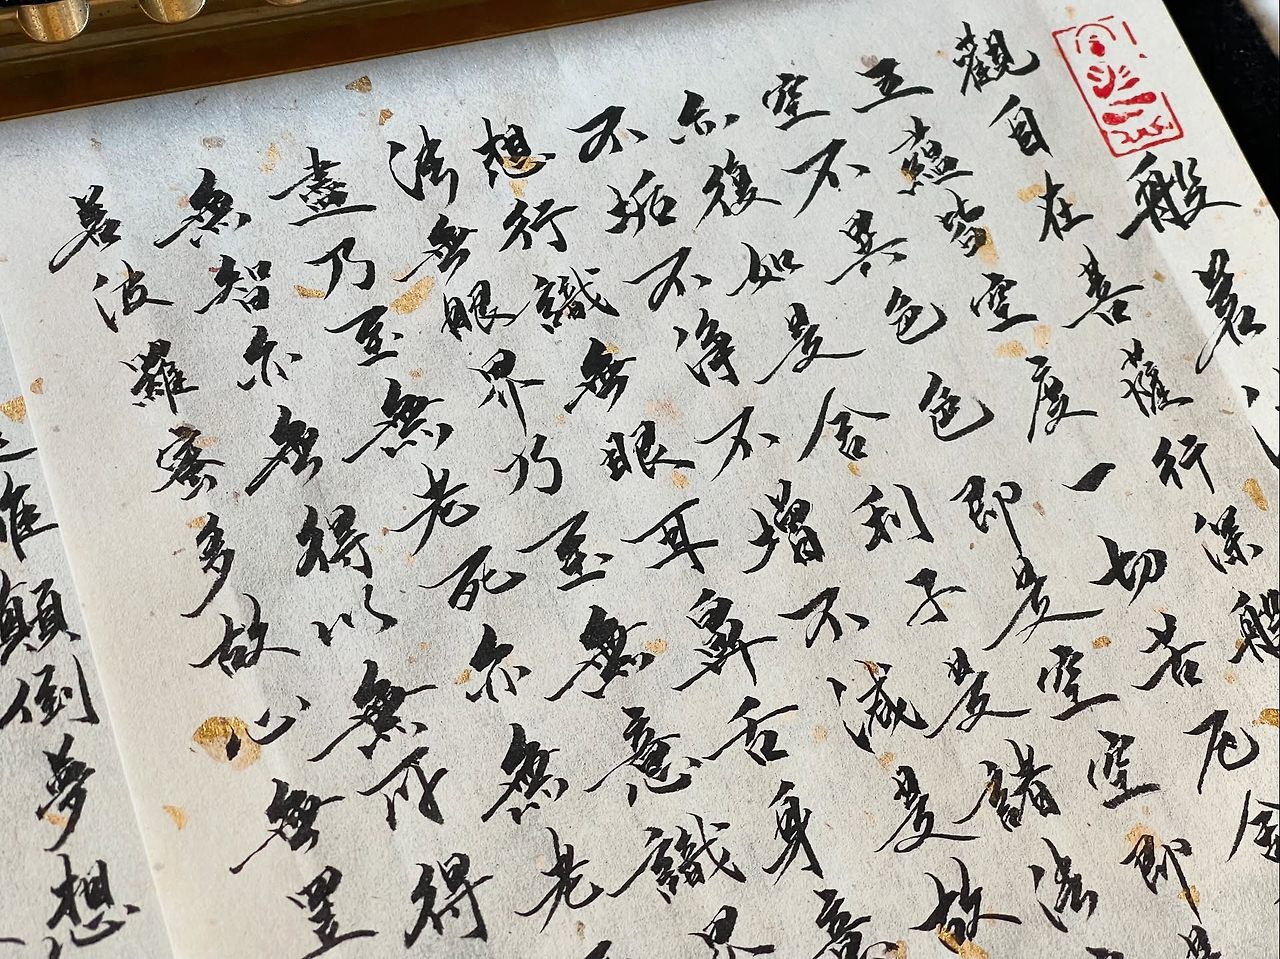 般若
觀自在菩薩行深般
五蘊皆空度一切苦厄舍
空不異色色即是空空即是
亦復如是舍利子是諸法
不垢不淨不增不減是故
想行識無眼耳鼻舌身意
法無眼界乃至無意識界
盡乃至無老死亦無老
無智亦無得以無所得
若波羅蜜多故心無罣
顛倒夢想